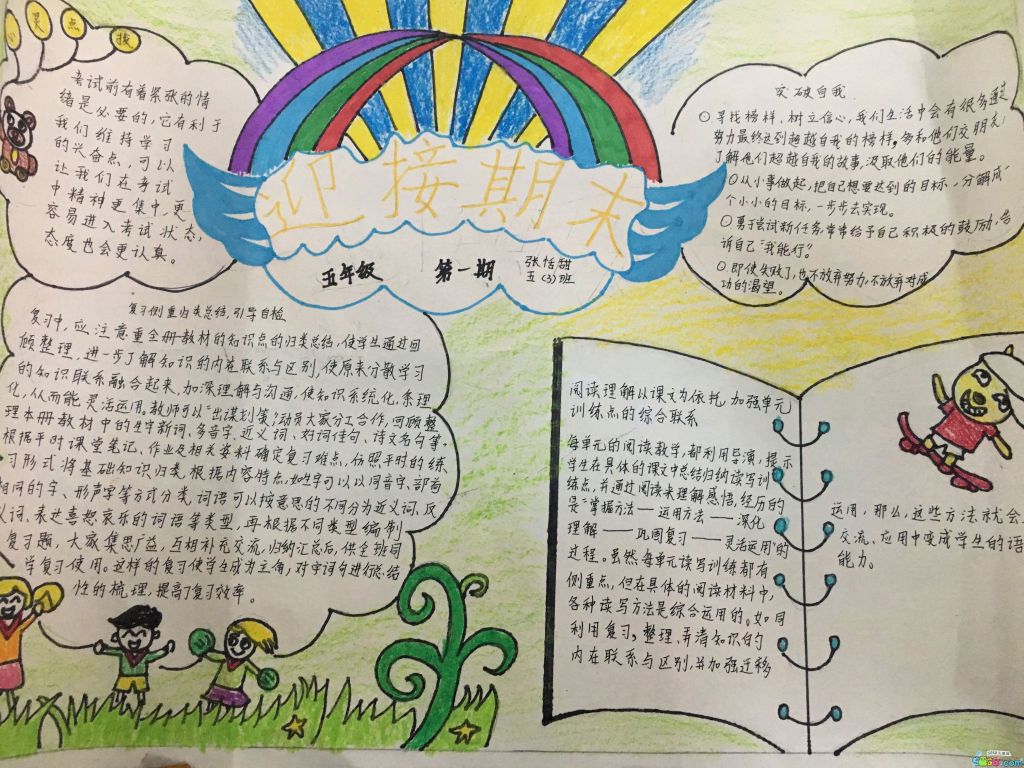 灵点拔
考试前有着紧张的情
绪是必要的,它有利于
我们维持学习
的兴奋点,可以
让我们在考试
中精神更集中,更
容易进入考试状态,
态度也会更认真。
迎接期末
五年级 第一期
张恬甜
五(3)班
突破自我
寻找榜样、树立信心,我们生活中会有很多通过
努力最终达到超越自我的榜样。多和他们交朋友,
了解他们超越自我的故事,汲取他们的能量。
从小事做起,把自己想要达到的目标,分解成
个小小的目标,一步步去实现。
勇于尝试新任务,常常给予自己积极的鼓励,告
诉自己“我能行”。
即使失败了,也不放弃努力,不放弃对成
功的渴望。
复习侧重归类总结,引导自检
复习中,应注意重全册教材的知识点的归类总结,使学生通过回
顾整理,进一步了解知识的内在联系与区别,使原来分散学习
的知识联系融合起来,加深理解与沟通,使知识系统化,条理
化,从而能灵活运用。教师可以“出谋划策”,动员大家分工合作,回顾整
理本册教材中的生字新词、多音字、近义词、好词佳句、诗文名句等。
根据平时课堂笔记、作业及相关资料确定复习难点,仿照平时的练
习形式将基础知识归类。根据内容特点,如生字可以以同音字、部首
相同的字、形声字等方式分类,词语可以按意思的不同分为近义词、反
义词、表达喜怒哀乐的词语等类型,再根据不同类型编制
复习题,大家集思广益,互相补充交流,归纳汇总后,供全班同
学复习使用。这样的复习使学生成为主角,对字词句进行总结
性的梳理,提高了复习效率。
阅读理解以课文为依托,加强单元
训练点的综合联系
每单元的阅读教学,都利用导演,提示
学生在具体的课文中总结归纳读写训
练点,并通过阅读来理解感悟,经历的
是“掌握方法——运用方法——深化
理解——巩固复习——灵活运用”的
过程。虽然每单元读写训练都有
侧重点,但在具体的阅读材料中,
各种读写方法是综合运用的。如同
利用复习,整理、弄清知识的
内在联系与区别,并加强迁移
运用,那么,这些方法就会
交流、应用中变成学生的语
能力。